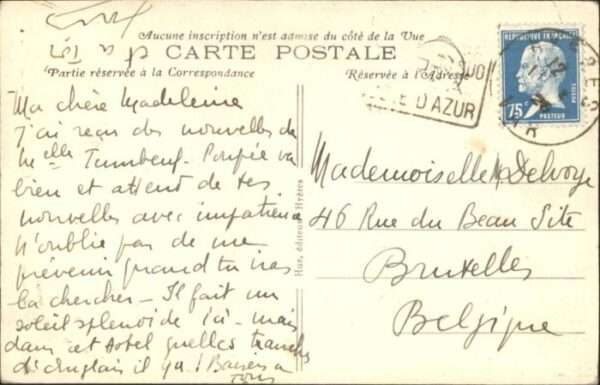 Aucune inscription n'est admise du côté de la Vue
CARTE POSTALE
Partie réservée à la Correspondance
Réservée à l'Adresse
Ma chère Madeleine
J'ai reçu des nouvelles de
Melle Tumbeuf. Poupée va
bien et attend de tes
nouvelles avec impatience
N'oublie pas de me
prévenir quand tu iras
la chercher – Il fait un
soleil splendide ici – mais
dans cet hotel quelles
d'anglais il y a ! Baisers à
tous
Hus, éditeur, Hyères
Mademoiselle M Delvoye
46 Rue du Beau Site
Bruxelles
Belgique
D'AZUR
RÉPUBLIQUE FRANÇAISE
75c
POSTES
PASTEUR
12
VAR